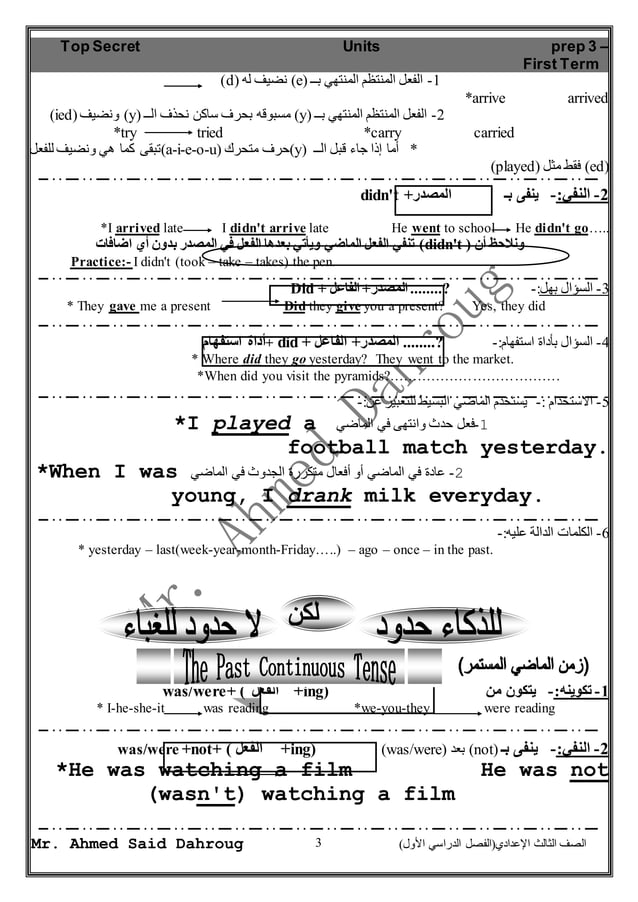 Top Secret Units prep 3 –
First Term
1- الفعل المنتظم المنتهي بــ (e) نضيف له (d)
*arrive arrived
2- الفعل المنتظم المنتهي بــ (y) مسبوقه بحرف ساكن نحذف الــ (y) ونضيف (ied)
*try tried *carry carried
* أما إذا جاء قبل الــ (y)حرف متحرك (a-i-e-o-u)تبقى كما هي ونضيف للفعل
(ed) فقط مثل (played)
2- النفي:- ينفى بـ didn't +المصدر
*I arrived late I didn't arrive late He went to school He didn't go…..
ونلاحظ أن ( didn't) تنفي الفعل الماضي ويأتي بعدها الفعل في المصدر بدون أي اضافات
Practice:- I didn't (took – take – takes) the pen.
3- السؤال بهل:- Did + الفاعل +المصدر ........?
* They gave me a present Did they give you a present? Yes, they did
4- السؤال بأداة استفهام:- أداة استفهام+ did + الفاعل +المصدر ........?
* Where did they go yesterday? They went to the market.
*When did you visit the pyramids?………………………………
5- الاستخدام :- يستخدم الماضي البسيط للتعبير عن:-
1-فعل حدث وانتهى في الماضي *I played a
football match yesterday.
2- عادة في الماضي أو أفعال متكررة الحدوث في الماضي *When I was
young, I drank milk everyday.
6- الكلمات الدالة عليه:-
* yesterday – last(week-year-month-Friday…..) – ago – once – in the past.
للذكاء حدود لكن لا حدود للغباء
The Past Continuous Tense (زمن الماضي المستمر)
1- تكوينه:- يتكون من was/were+ ( الفعل +ing)
* I-he-she-it was reading *we-you-they were reading
2- النفي:- ينفى بـ (not) بعد (was/were) was/were +not+ ( الفعل +ing)
*He was watching a film He was not
(wasn't) watching a film
Mr. Ahmed Said Dahroug 3 الصف الثالث الإعدادي(الفصل الدراسي الأول)
Mr. Ahmed Dahroug